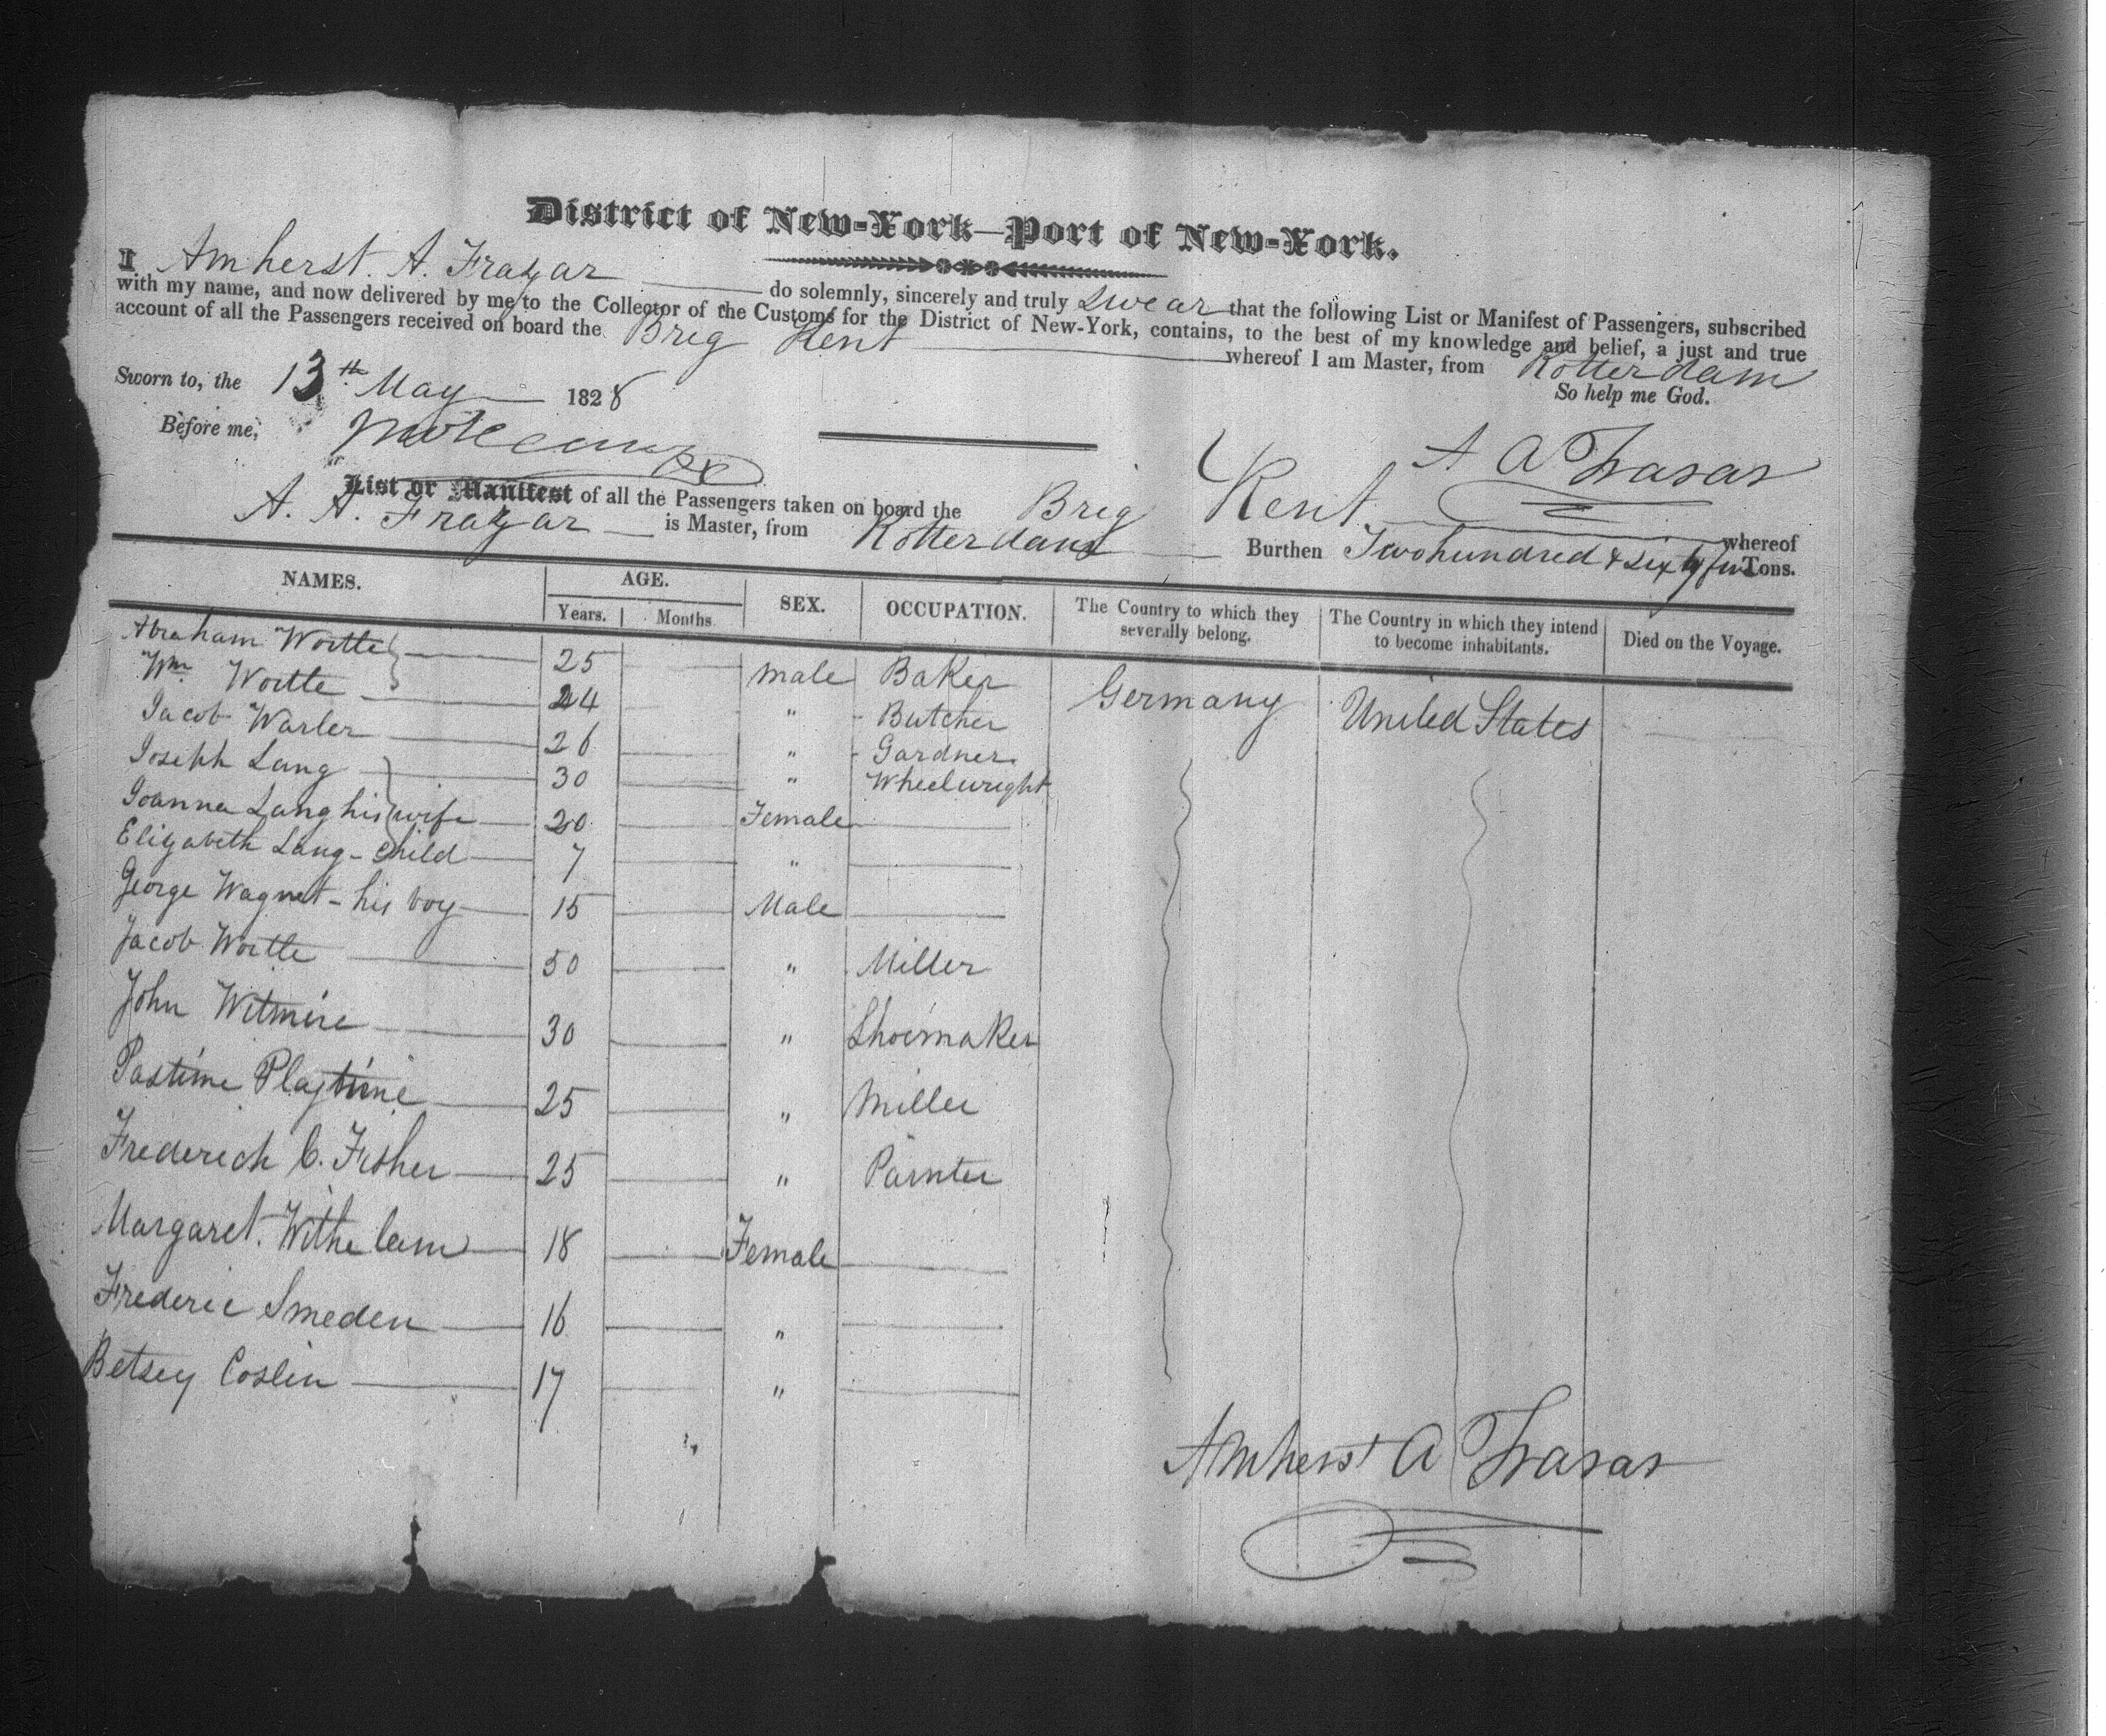 District of New-York—Port of New-York.
I Amherst. A. Frazar do solemnly, sincerely and truly swear that the following List or Manifest of Passengers, subscribed
with my name, and now delivered by me to the Collector of the Customs for the District of New-York, contains, to the best of my knowledge and belief, a just and true
account of all the Passengers received on board the Brig Kent whereof I am Master, from Rotterdam
Sworn to, the 13th May 1828 So help me God.
Before me, A A Frasar
List or Manifest of all the Passengers taken on board the Brig Kent whereof
A. A. Frazar is Master, from Rotterdam Burthen Two hundred & sixty five Tons.
NAMES. AGE. SEX. OCCUPATION. The Country to which they severally belong. The Country in which they intend to become inhabitants. Died on the Voyage.
Years. Months.
Abraham Wortte 25 male Baker Germany United States
Wm Wortte 24 " Butcher
Jacob Warler 26 " Gardner
Joseph Lang 30 " Wheelwright
Joanna Lang his wife 20 Female
Elizabeth Lang - Child 7 "
George Wagnet - his boy 15 Male
Jacob Wortte 50 " Miller
John Witmire 30 " Shoemaker
Pastime Playtime 25 " Miller
Frederich C. Fisher 25 " Painter
Margaret. Withelem 18 Female
Frederic Smeden 16 "
Betsey Coslin 17 "
Amherst A Frasar